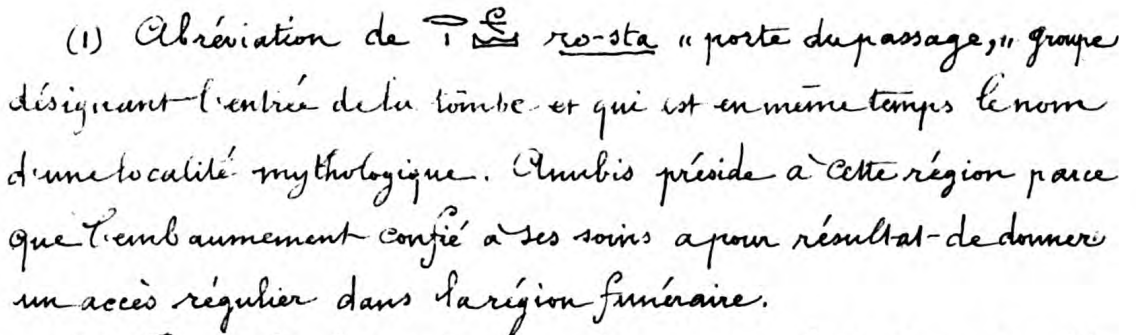 (1) Abréviation de ro-sta « porte du passage, » groupe
désignant l'entrée de la tombe et qui est en même temps le nom
d'une localité mythologique. Anubis préside à cette région parce
que l'embaumement confié à ses soins a pour résultat de donner
un accès régulier dans la région funéraire.